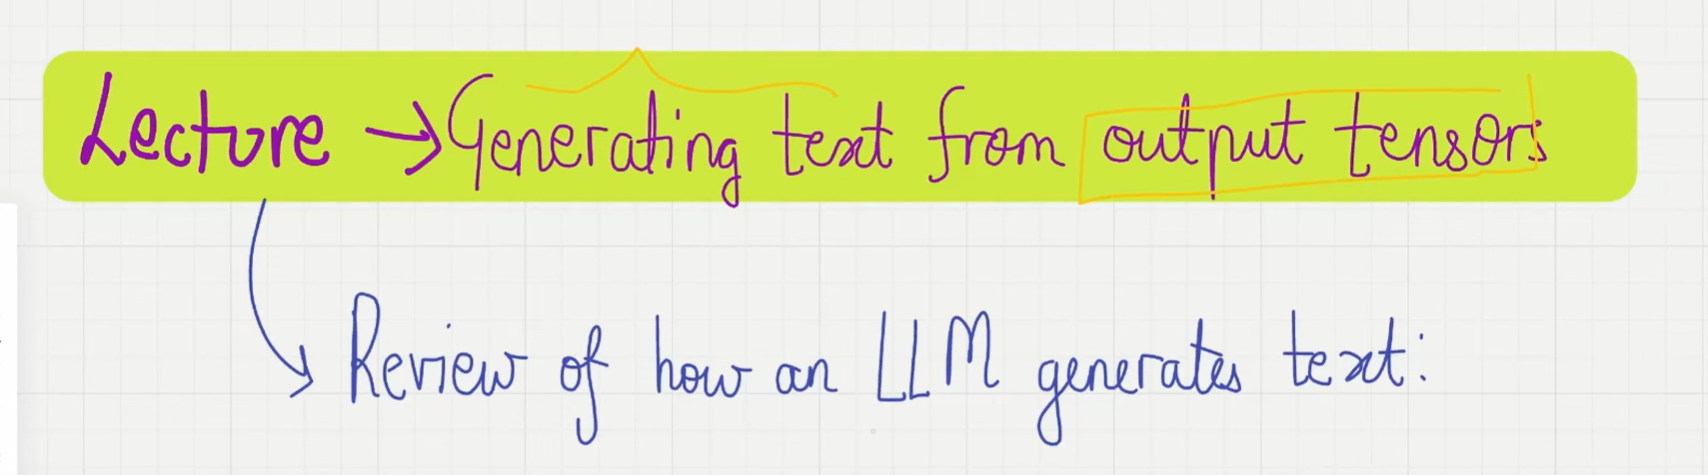 Lecture → Generating text from output tensors
Review of how an LLM generates text: